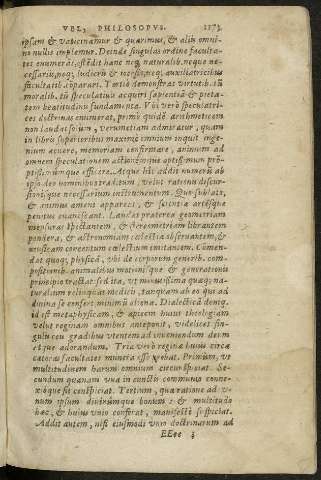 VEL, PHILOSOPVS. 1173
ipsam & vaticinamur & quærimus, & alio omni-
no nullis implemur. Deinde singulas ordine faculta-
tes enumerās, ostēdit hanc neq; naturalib. neque ne-
cessariis, neq; ludicris & iocosis, neq; auxiliatricibus
facultatib. apparari. Tertiò demonstrat virtutib. tū
moralib. tū speculatiuis acquiri sapientiā & pieta-
tem beatitudinis fundamenta. Vbi verò speculatri-
ces doctrinas enumerat, primò quidē arithmeticam
non laudat solùm, verumetiam admiratur, quam
in libris superioribus maximè omnium inquit inge-
nium acuere, memoriam confirmare, animum ad
omnem speculationem actionémque optissimum prō-
ptissimumque efficere. Atque hîc addit numeris ab
ipso deo hominibus traditum, velut rationis discur-
sionísque necessarium instrumentum. Quo sublato,
& animus amens apparet, & scientiæ artésque
penitus euanescant. Laudat præterea geometriam
mensuras spectantem, & stereometriam librantem
pondera, & astronomiam cælestia obseruantem, &
musicam concentum cælestium imitantem. Cōmen-
dat quoq; physicā, vbi de corporum generib. com-
positionib. animalibus motionísque & generationis
principio tractat. sed ita, vt
turalium relinquat medicis, tanquam ab eo quæ ad
diuina se confert minimū aliena. Dialecticā deniq;
id est metaphysicam, & apicem huius theologiam
velut reginam omnibus anteponit, videlicet sin-
gulis ceu gradibus vtentem ad inueniendum deum
et que adorandum. Tria verò reginæ huius circa
cæteras facultates munera esse probat. Primùm, vt
multitudinem harum omnium circūspiciat. Se-
cundum quanam vna in cunctis communio conne-
xióque sit conspiciat. Tertium, qua ratione ad v-
num ipsum diuinúmque bonum: & multitudo
hæc, & huius vnio conferat, manifestè perspiciat.
Addit autem, nisi eiusmodi vnio doctrinarum ad
EEee 3